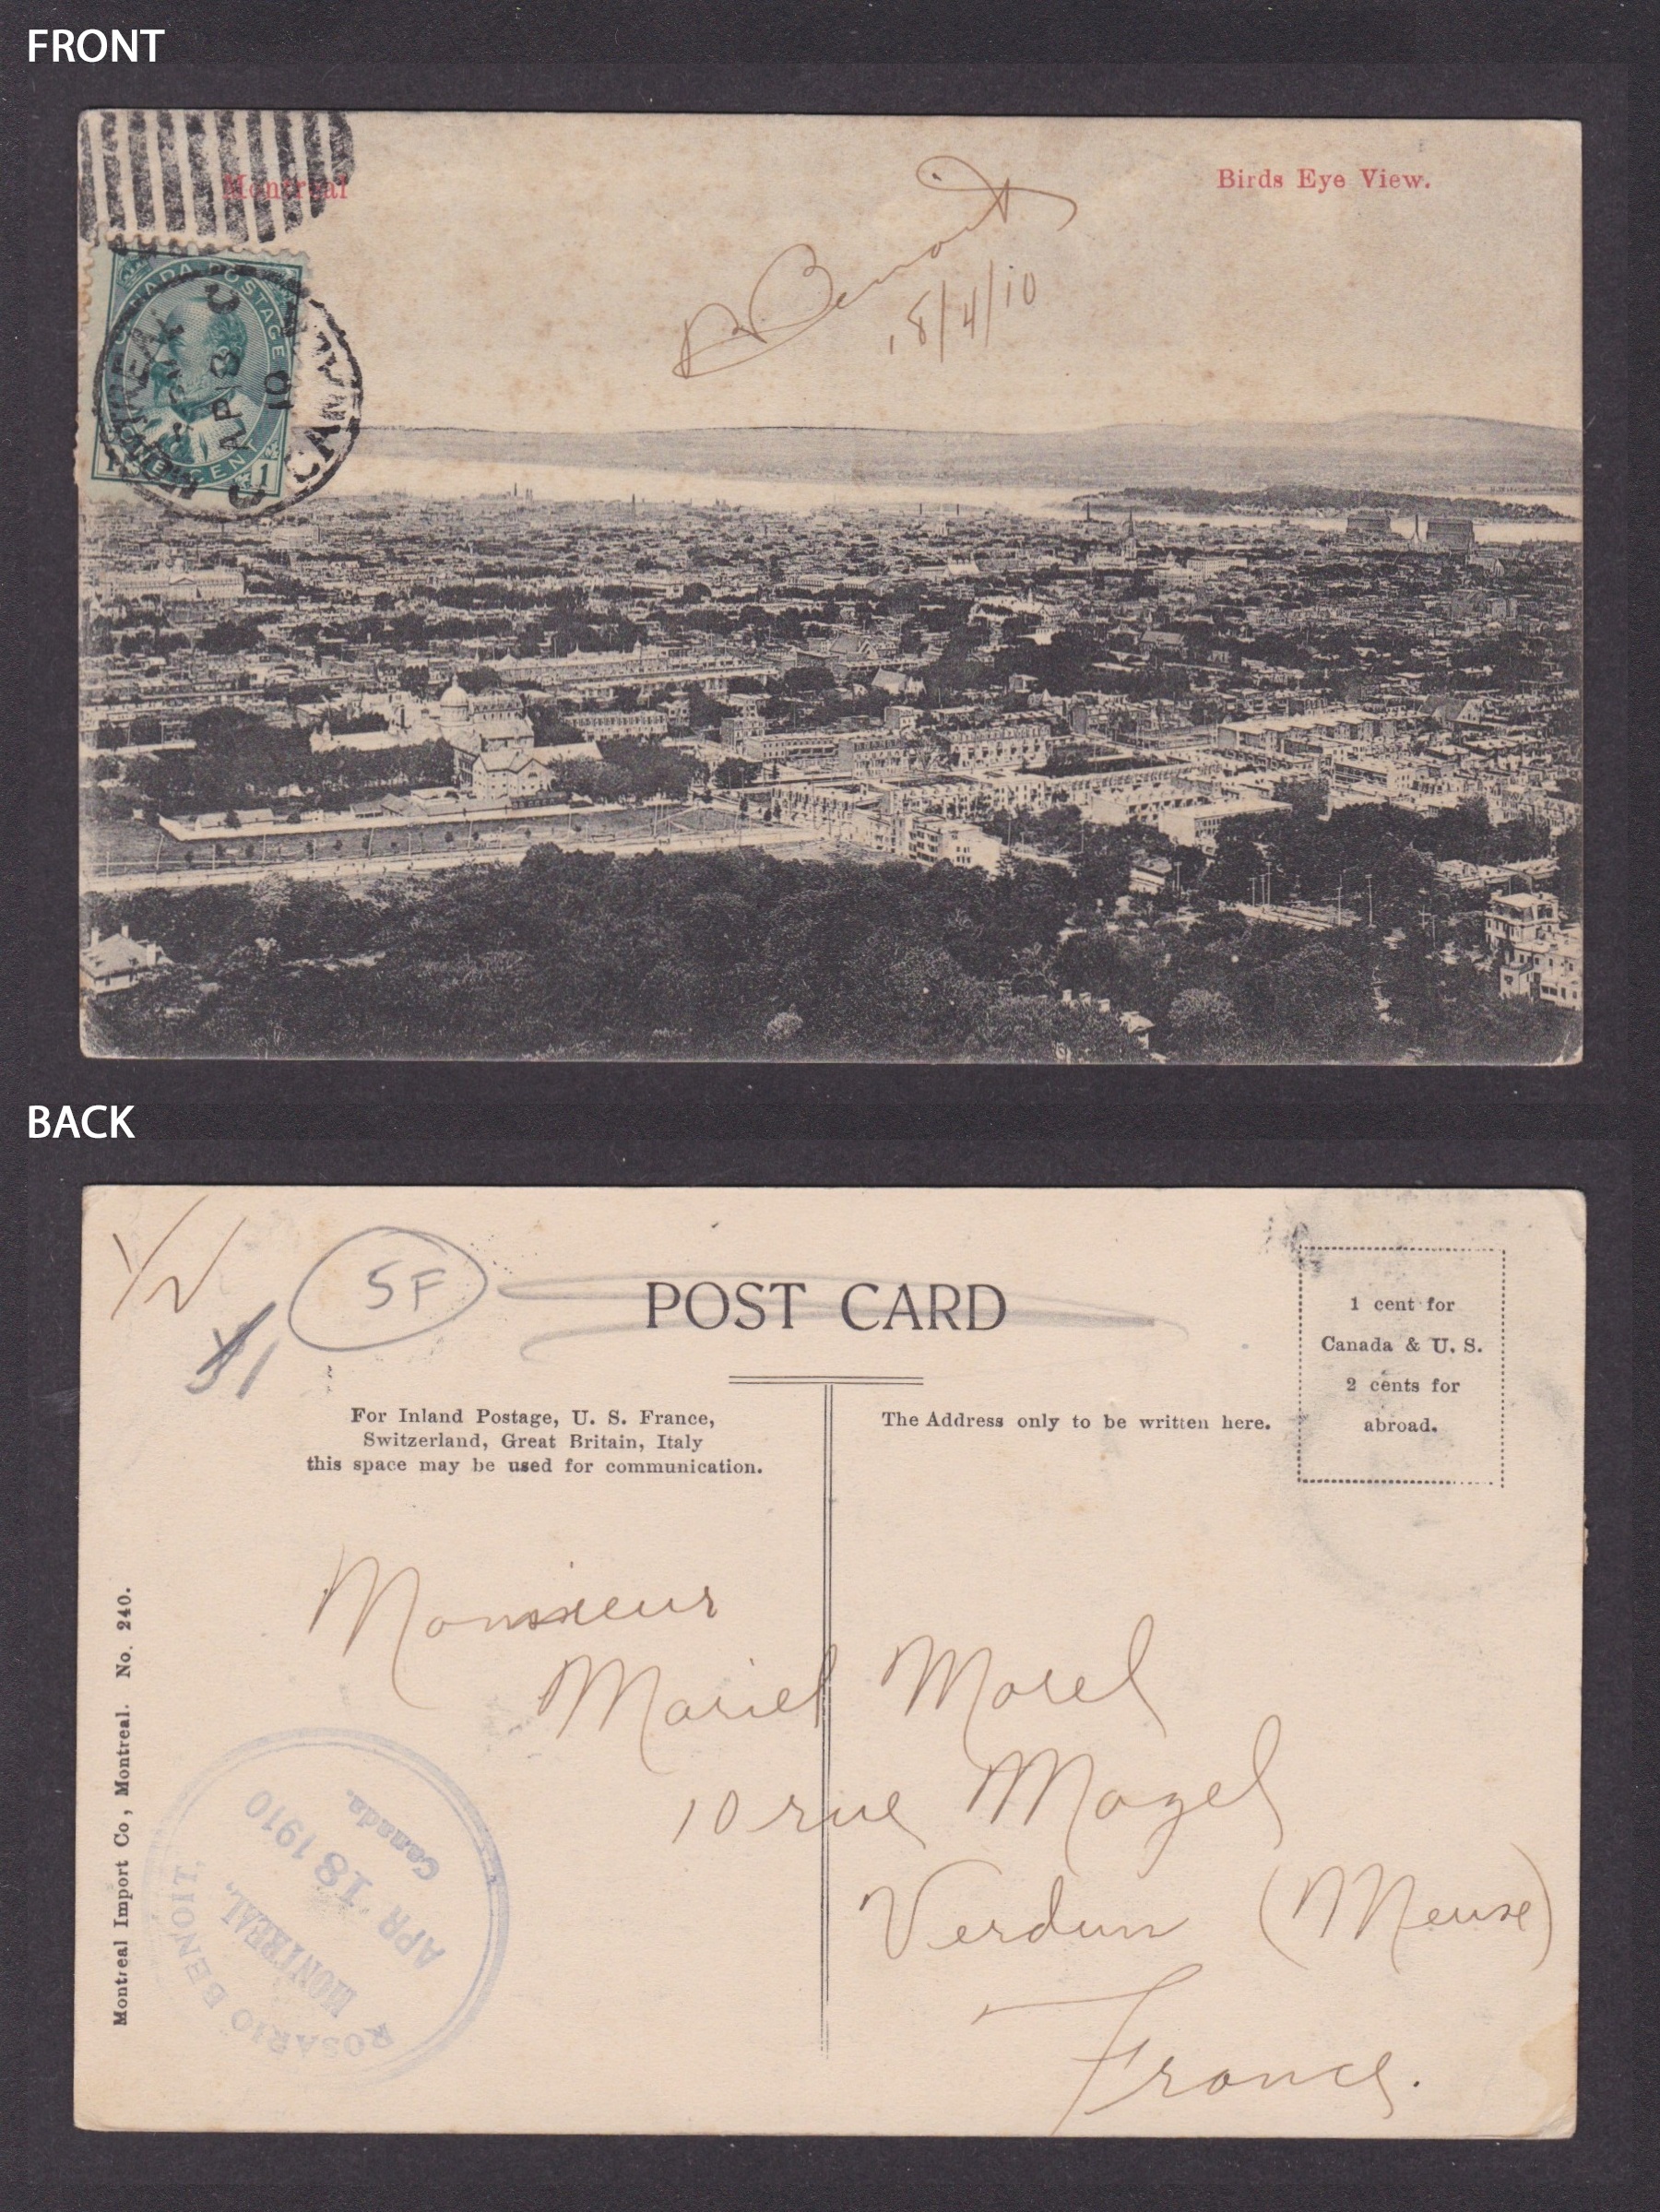 FRONT
Montreal
Birds Eye View.
R. Benoit
18/4/10
CANADA POSTAGE
ONE CENT
1 1
MONTREAL
AP 18
10
CANADA
BACK
1/2
5F
POST CARD
1 cent for
Canada & U. S.
2 cents for
abroad.
For Inland Postage, U. S. France,
Switzerland, Great Britain, Italy
this space may be used for communication.
The Address only to be written here.
Monsieur
Mariel Morel
10 rue Mazel
Verdun (Meuse)
France.
Montreal Import Co, Montreal. No. 240.
ROSARIO BENOIT,
MONTREAL,
APR 18 1910
Canada.